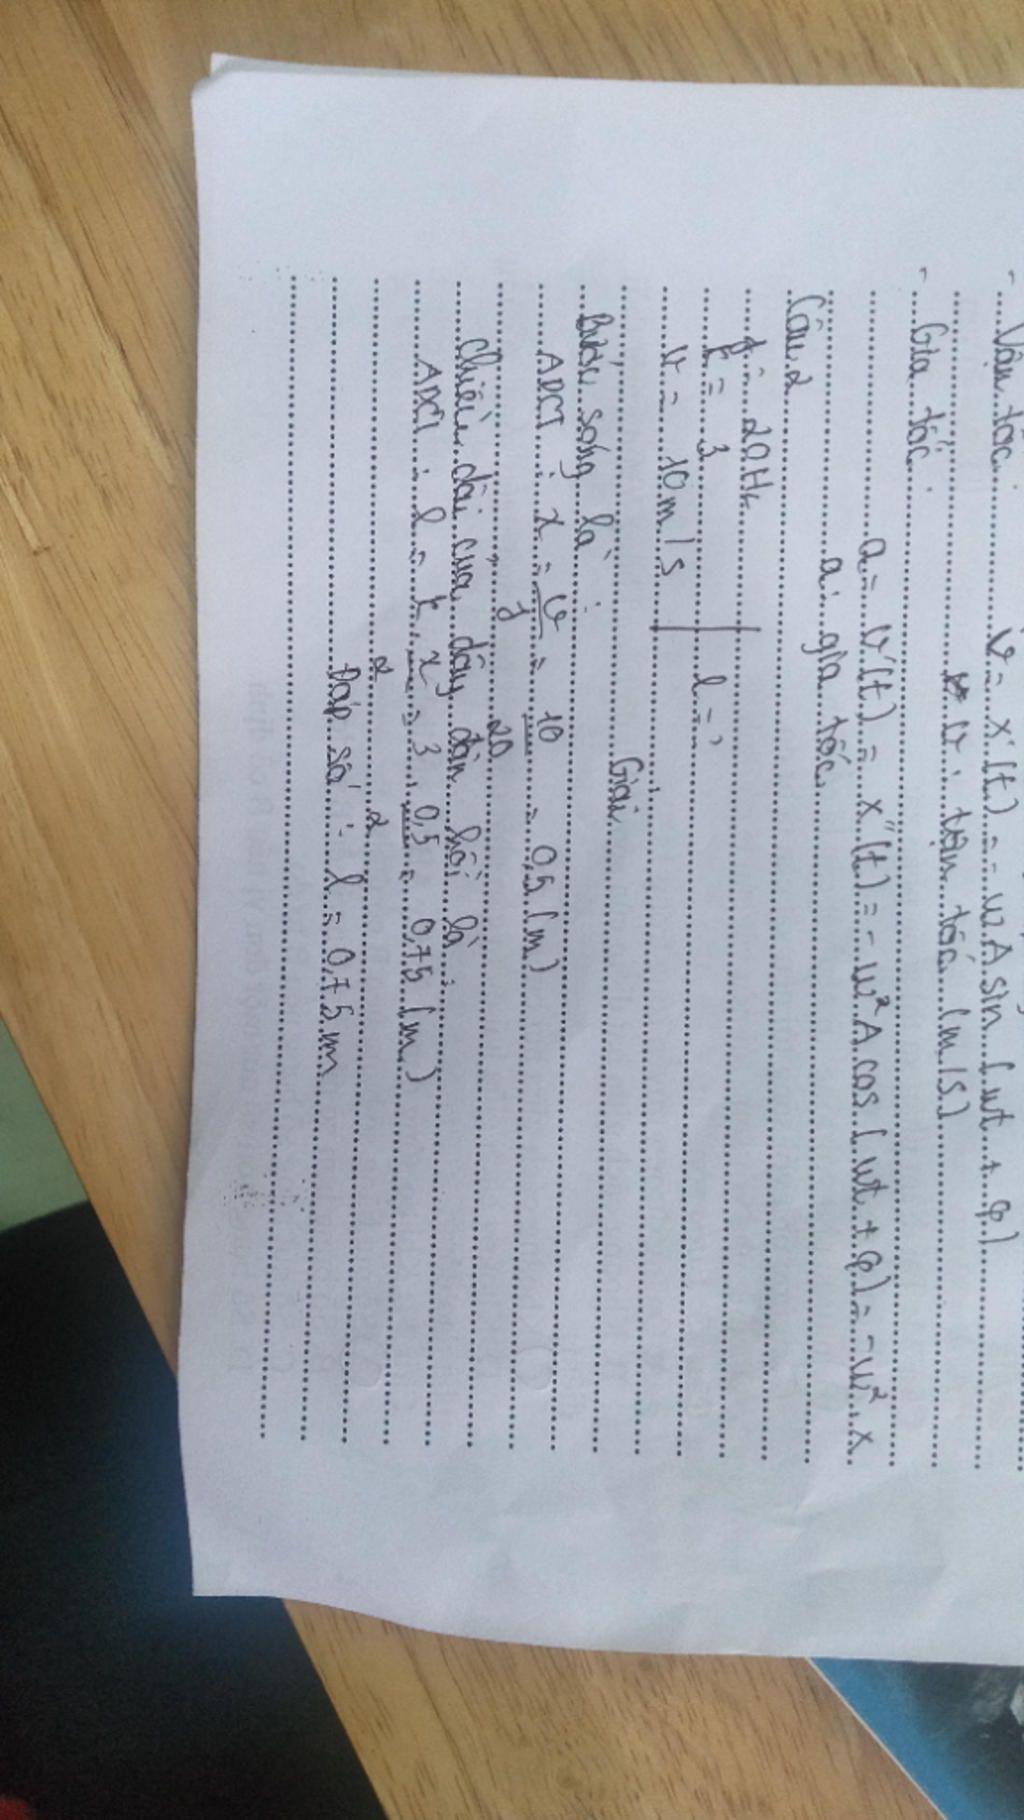 - Vận tốc: v = x'(t) = -ωA sin (ωt + φ)
v: vận tốc (m/s)
- Gia tốc:
a = v'(t) = x''(t) = -ω² A cos (ωt + φ) = -ω². x
a: gia tốc
Câu 2
f = 20Hz
k = 3 l = ?
v = 10 m/s
Giải
Bước sóng là:
ADCT: λ = v/f = 10/20 = 0,5 (m)
Chiều dài của dây đàn hồi là:
ADCT: l = k λ/2 = 3. 0,5/2 = 0,75 (m)
Đáp số: l = 0,75m